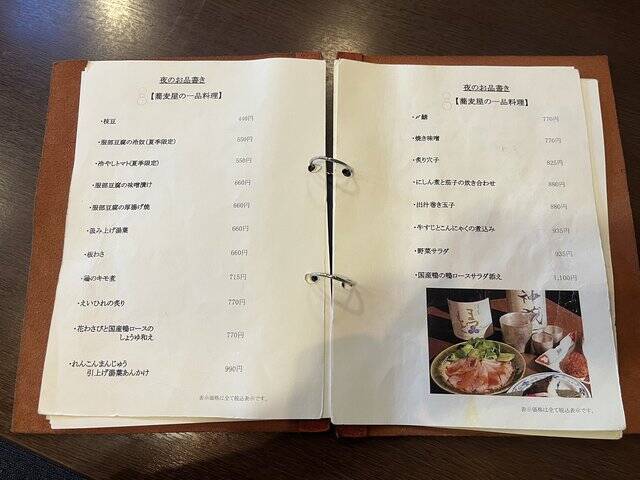 夜のお品書き
【蕎麦屋の一品料理】
・枝豆 440円
・服部豆腐の冷奴(夏季限定) 550円
・冷やしトマト(夏季限定) 550円
・服部豆腐の味噌漬け 660円
・服部豆腐の厚揚げ焼 660円
・汲み上げ湯葉 660円
・板わさ 660円
のキモ煮 715円
・えいひれの炙り 770円
・花わさびと国産鴨ロースの
しょうゆ和え 770円
・れんこんまんじゅう
引上げ湯葉あんかけ 990円
表示価格は全て税込表示です。
夜のお品書き
【蕎麦屋の一品料理】
・〆鯖 770円
・焼き味噌 770円
・炙り穴子 825円
・にしん煮と茄子の炊き合わせ 880円
・出汁巻き玉子 880円
・牛すじとこんにゃくの煮込み 935円
・野菜サラダ 935円
・国産鴨の鴨ロースサラダ添え 1,100円
表示価格は全て税込表示です。